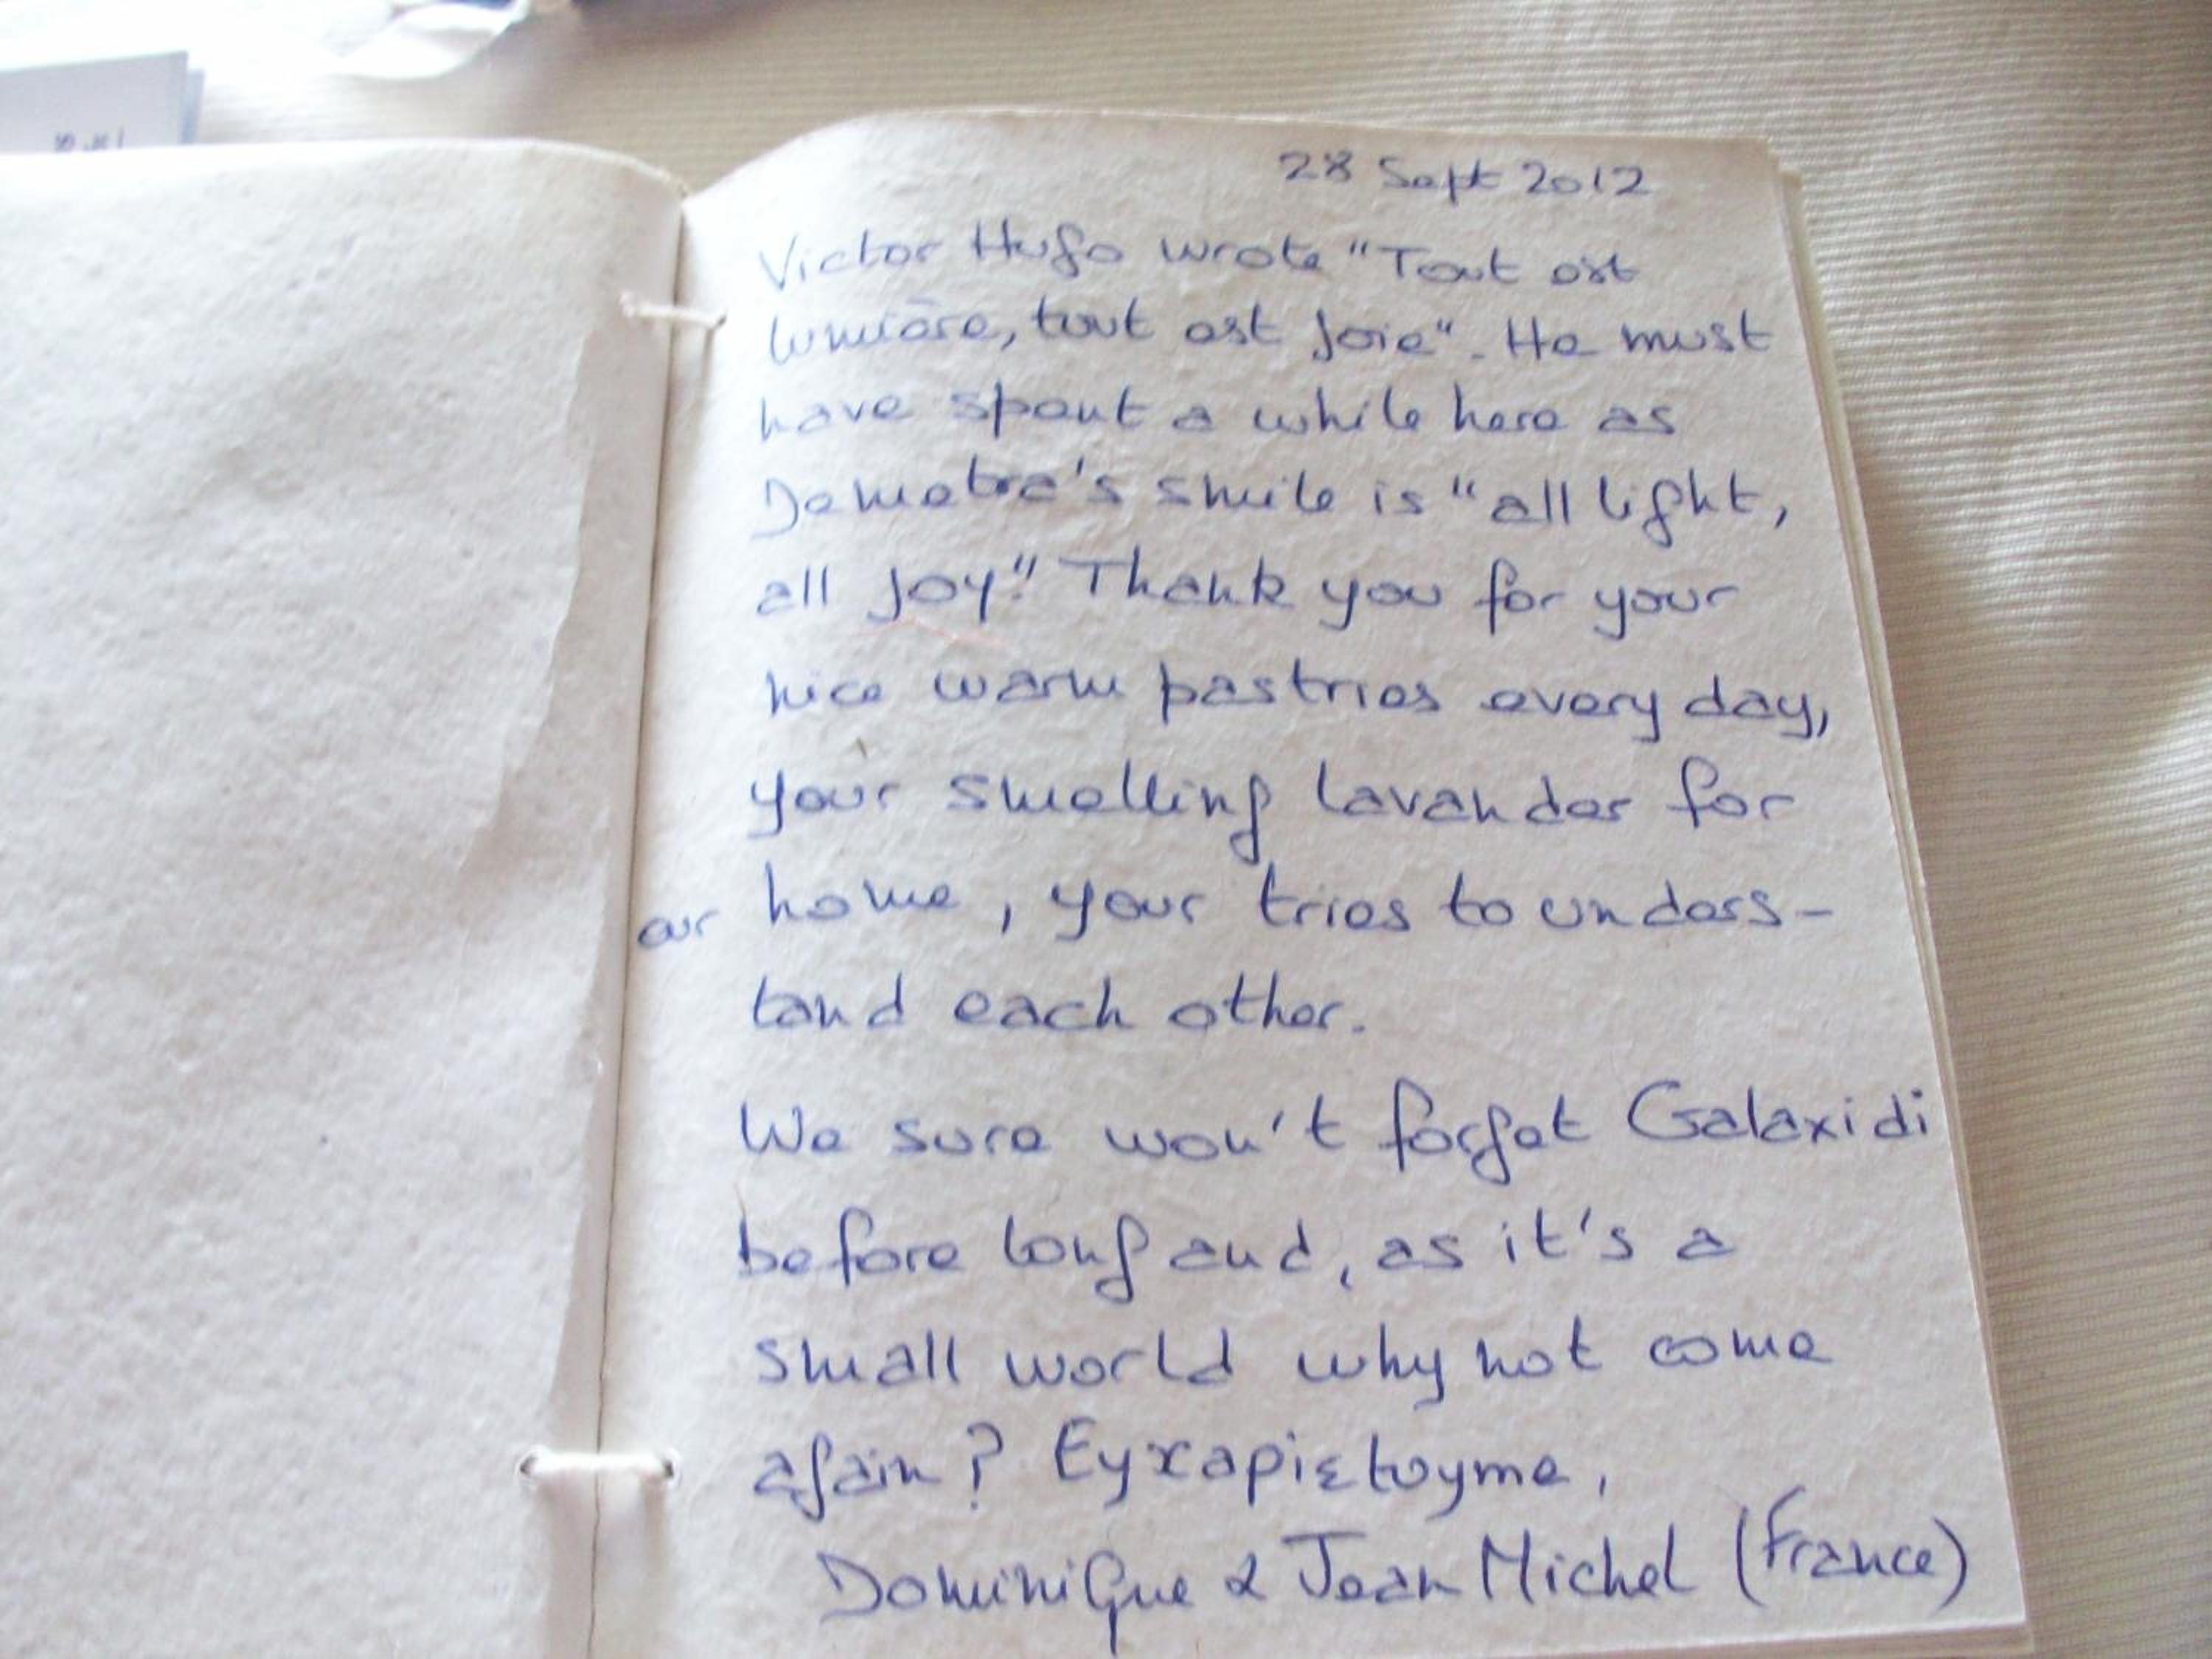 28 Sept 2012
Victor Hugo wrote "Tout est
lumière, tout est joie". He must
have spent a while here as
Demetra's smile is "all light,
all joy". Thank you for your
nice warm pastries every day,
your smelling lavander for
our home, your tries to unders-
tand each other.
We sure won't forget Galaxidi
before long and, as it's a
small world why not come
again? Eyxapiƨtoyme,
Dominique & Jean Michel (France)